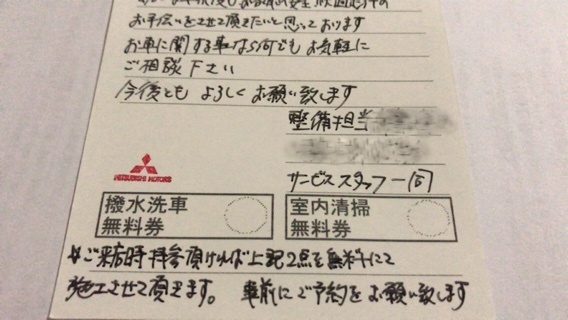 お手伝いをさせて頂きたいと思っております
お車に関する事なら何でもお気軽に
ご相談下さい
今後ともよろしくお願い致します
整備担当
サービススタッフ一同
MITSUBISHI MOTORS
撥水洗車
無料券
室内清掃
無料券
※ご来店時持参頂ければ上記2点を無料にて
施工させて頂きます。 事前にご予約をお願い致します